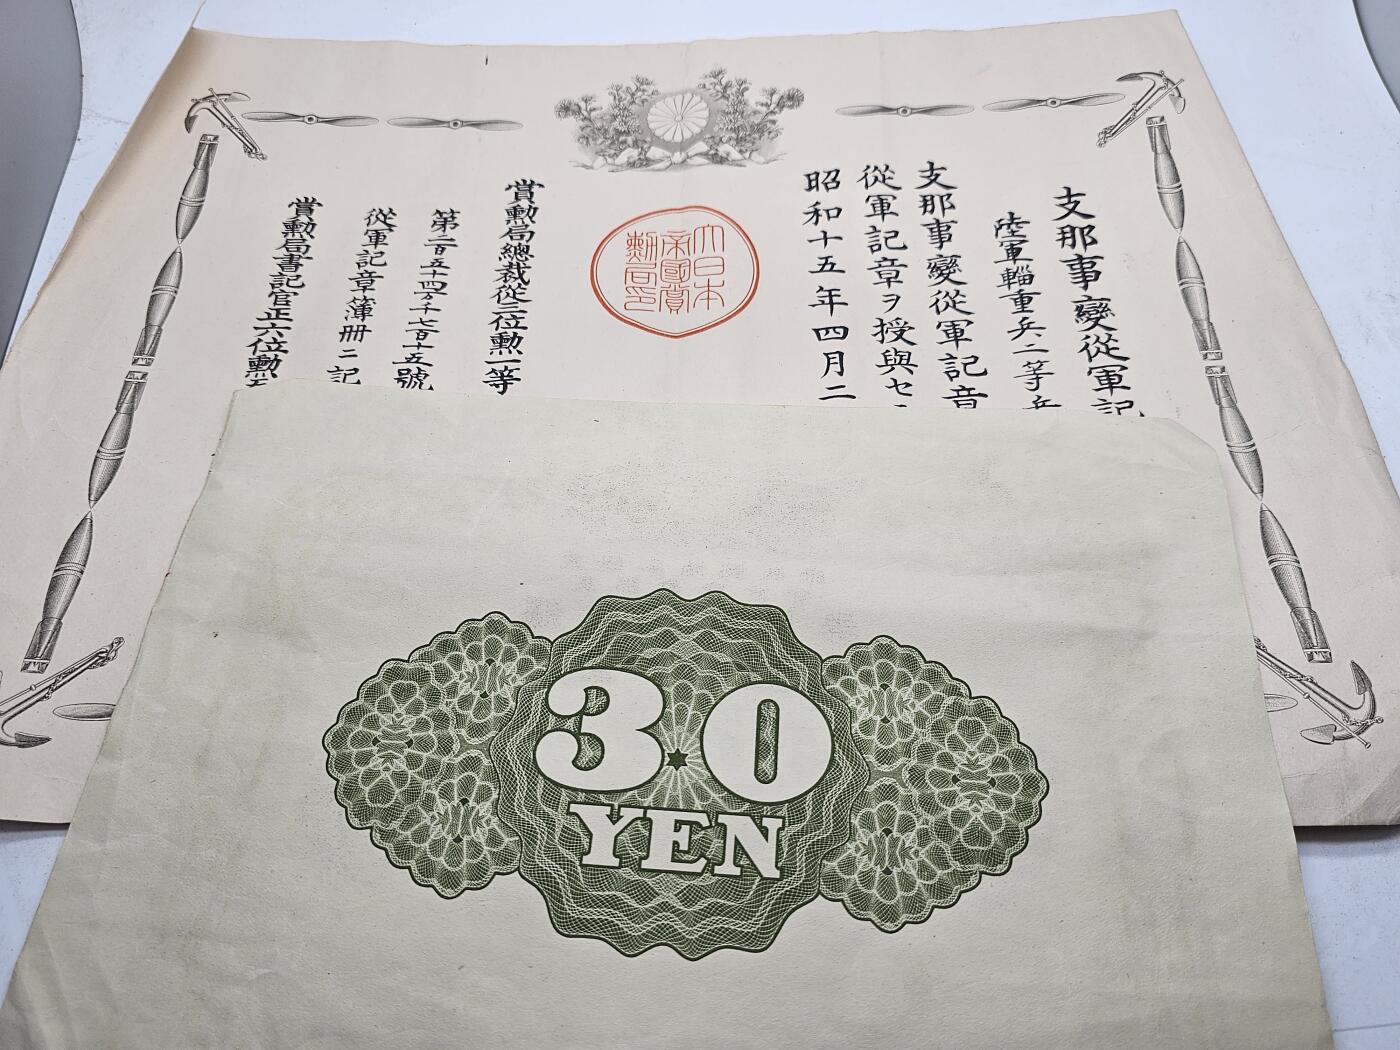 支那事變從軍記
陸軍輜重兵二等兵
支那事變從軍記章
從軍記章ヲ授與セ
昭和十五年四月二
大日本
帝國賞
勲局印
賞勲局總裁從三位勲一等
第二百五十四万千七百十五號
從軍記章簿冊ニ記
賞勲局書記官正六位勲五
30
YEN